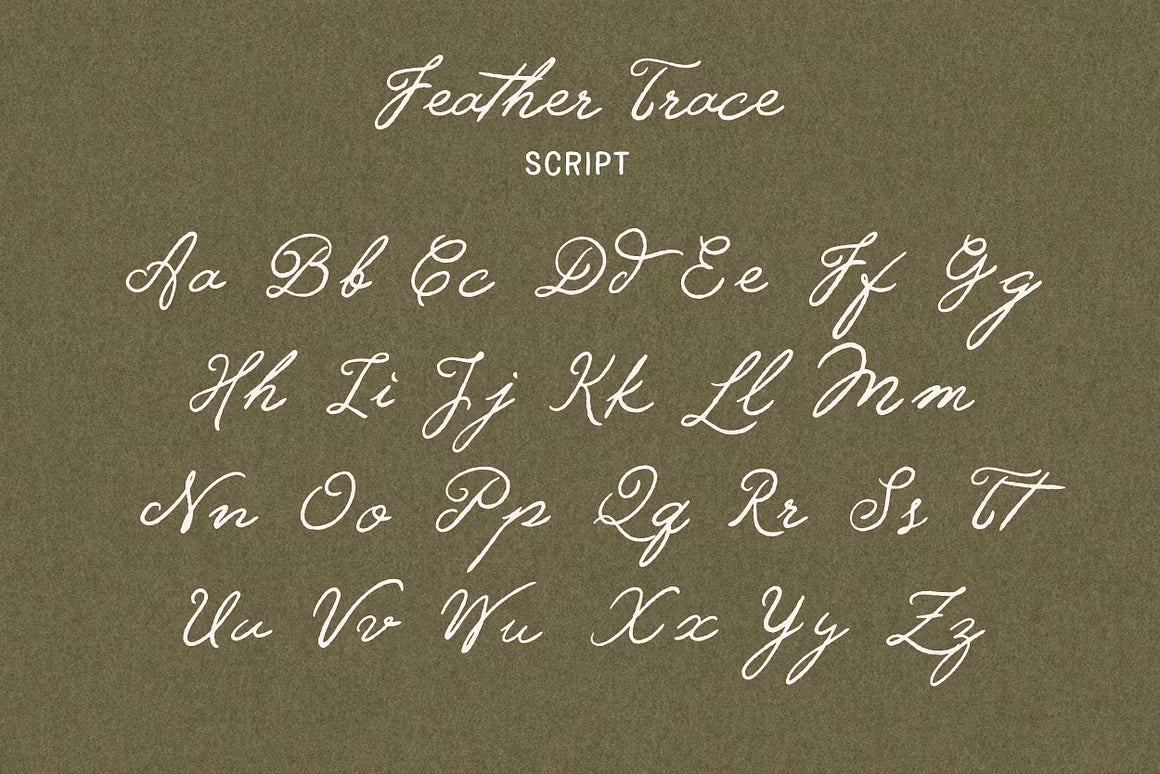 Feather Trace
SCRIPT
Aa Bb Cc Dd Ee Ff Gg
Hh Ii Jj Kk Ll Mm
Nn Oo Pp Qq Rr Ss Tt
Uu Vv Ww Xx Yy Zz